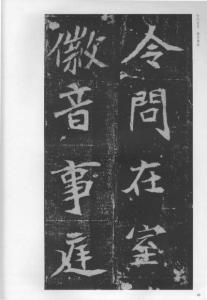 令問在室
徽音事庭